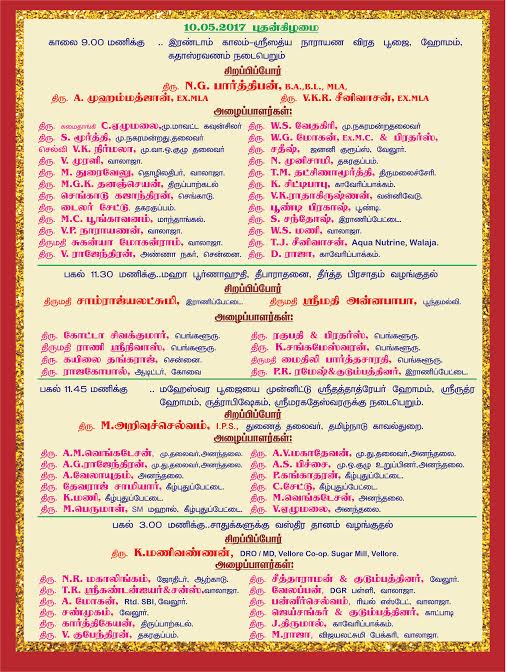 10.05.2017 புதன்கிழமை
காலை 9.00 மணிக்கு .. இரண்டாம் காலம்-ஸ்ரீஸத்ய நாராயண விரத பூஜை, ஹோமம்,
கதாஸ்ரவணம் நடைபெறும்
சிறப்பிப்போர்
திரு. N.G. பார்த்திபன், B.A.,B.L., MLA,
திரு. A. முஹம்மத்ஜான், EX.MLA திரு. V.K.R. சீனிவாசன், EX.MLA
அழைப்பாளர்கள்:
திரு. C.ஏழுமலை,மு.மாவட்ட கவுன்சிலர் திரு. W.S. வேதகிரி, மு.நகரமன்றதலைவர்
திரு. S. மூர்த்தி, மு.நகரமன்றது.தலைவர் திரு. W.G. மோகன், Ex.M.C. & பிரதர்ஸ்,
செல்வி V.K. நிர்மலா, மு.வா.ஒ.குழு தலைவர் திரு. சதீஷ், ஜனனி குரூப்ஸ், வேலூர்.
திரு. V. முரளி, வாலாஜா. திரு. N. முனிசாமி, தகரகுப்பம்.
திரு. M. துரைவேலு, தொழிலதிபர், வாலாஜா. திரு. T.M. தட்சிணாமூர்த்தி, திருமலைச்சேரி.
திரு. M.G.K. தனஞ்செயன், திருப்பாற்கடல் திரு. K. சிட்டிபாபு, காவேரிப்பாக்கம்.
திரு. செங்காடு கஜாந்திரன், செங்காடு. திரு. V.K.ராதாகிருஷ்ணன், வன்னிவேடு.
திரு. டைலர் சேட்டு, தகரகுப்பம். திரு. பூண்டி பிரகாஷ், பூண்டி.
திரு. M.C. பூங்காவனம், மாந்தாங்கல். திரு. S. சந்தோஷ், இராணிப்பேட்டை.
திரு. V.P. நாராயணன், வாலாஜா. திரு. W.S. மணி, வாலாஜா.
திருமதி சுகன்யா மோகன்ராம், வாலாஜா. திரு. T.J. சீனிவாசன், Aqua Nutrine, Walaja.
திரு. V. ராஜேந்திரன், அண்ணா நகர், சென்னை. திரு. D. ராஜா, காவேரிப்பாக்கம்.
பகல் 11.30 மணிக்கு..மஹா பூர்ணாஹுதி, தீபாராதனை, தீர்த்த பிரசாதம் வழங்குதல்
சிறப்பிப்போர்
திருமதி சாம்ராஜ்யலட்சுமி, இராணிப்பேட்டை. திருமதி ஸ்ரீமதி அன்னபாபா, பூந்தமல்லி.
அழைப்பாளர்கள்:
திரு. கோட்டா சிவக்குமார், பெங்களூரு. திரு. ரகுபதி & பிரதர்ஸ், பெங்களூரு.
திருமதி ராணி ஸ்ரீநிவாஸ், பெங்களூரு. திரு. K.சங்கமேஸ்வரன், பெங்களூரு.
திரு. கயிலை தங்கராஜ், சென்னை. திருமதி மைதிலி பார்த்தசாரதி, பெங்களூரு.
திரு. ராஜகோபால், ஆடிட்டர், கோவை திரு. P.R. ரமேஷ்&குடும்பத்தினர், இராணிப்பேட்டை.
பகல் 11.45 மணிக்கு .. மஹேஸ்வர பூஜையை முன்னிட்டு ஸ்ரீதத்தாத்ரேயர் ஹோமம், ஸ்ரீருத்ர
ஹோமம், ருத்ராபிஷேகம், ஸ்ரீமரகதேஸ்வரருக்கு நடைபெறும்.
சிறப்பிப்போர்
திரு. M.அறிவுச்செல்வம், I.P.S., துணைத் தலைவர், தமிழ்நாடு காவல்துறை.
அழைப்பாளர்கள்:
திரு. A.M.வெங்கடேசன், மு.து.தலைவர்,அனந்தலை. திரு. A.V.மகாதேவன், மு.து.தலைவர்,அனந்தலை.
திரு. A.G.ராஜேந்திரன், மு.து.தலைவர்,அனந்தலை. திரு. A.S. பிச்சை, மு.ஒ.குழு உறுப்பினர்.அனந்தலை.
திரு. A.வேலாயுதம், அனந்தலை. திரு. P.கங்காதரன், கீழ்புதுப்பேட்டை.
திரு. தேவராஜ் சாமியார், கீழ்புதுப்பேட்டை. திரு. C.சேட்டு, கீழ்புதுப்பேட்டை.
திரு. K.மணி, கீழ்புதுப்பேட்டை. திரு. M.வெங்கடேசன், அனந்தலை.
திரு. M.பெருமாள், SM மஹால், கீழ்புதுப்பேட்டை. திரு. V.ஏழுமலை, அனந்தலை.
பகல் 3.00 மணிக்கு..சாதுக்களுக்கு வஸ்திர தானம் வழங்குதல்
சிறப்பிப்போர்
திரு. K.மணிவண்ணன், DRO / MD, Vellore Co-op. Sugar Mill, Vellore.
அழைப்பாளர்கள்:
திரு. N.R. மகாலிங்கம், ஜோதிடர், ஆற்காடு. திரு. சீத்தாராமன் & குடும்பத்தினர், வேலூர்.
திரு. T.R. ஸ்ரீகண்டன்ஐயர்&சன்ஸ்,வாலாஜா. திரு. வேலப்பன், DGR பள்ளி, வாலாஜா.
திரு. A. மோகன், Rtd. SBI, வேலூர். திரு. பன்னீர்செல்வம், ரியல் எஸ்டேட், வாலாஜா.
திரு. சண்முகம், வேலூர். திரு. ஜெய்சங்கர் & குடும்பத்தினர், காட்பாடி
திரு. கார்த்திகேயன், திருப்பாற்கடல். திரு. J.திருமால், காவேரிப்பாக்கம்.
திரு. V. குபேந்திரன், தகரகுப்பம். திரு. M.ராஜா, விஜயலட்சுமி பேக்கரி, வாலாஜா.